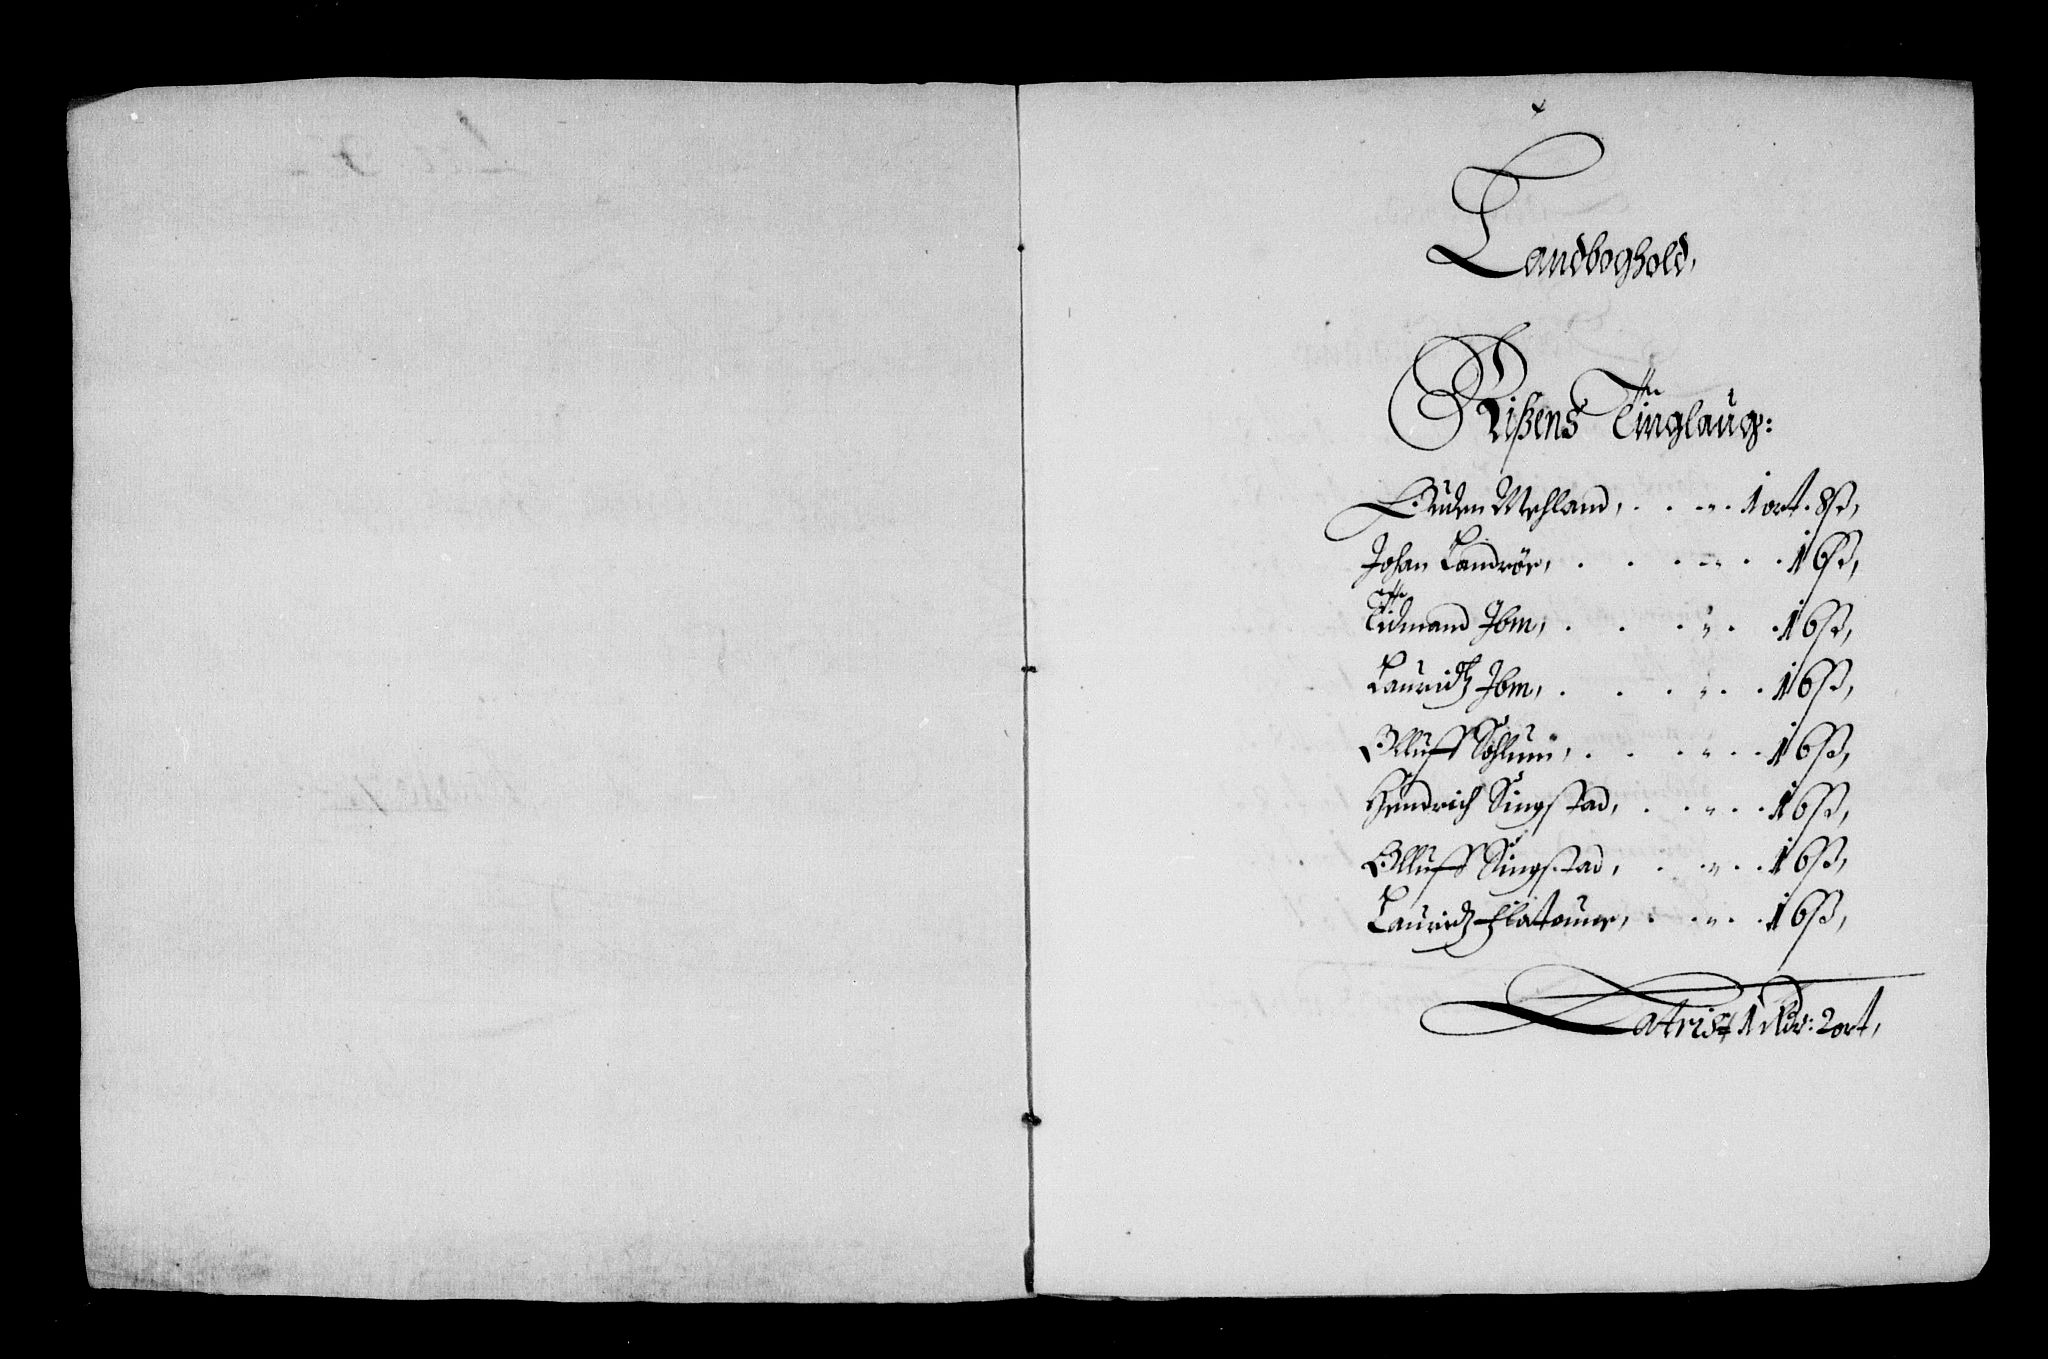 Landboghold,
Rißens Tinglaug:
Ouden Mehland, . . „ . 1 ort. 8 ß,
Johan Landrør, . . . „ . . 16 ß,
Tidmand Ibm, . . . „ . . 16 ß,
Lauridtz Ibm, . . . „ . . 16 ß,
Olluff Sohlumb, . . . „ . . 16 ß,
Hendrich Singstad, . . „ . . 16 ß,
Olluff Singstad, . . „ . . 16 ß,
Lauridtz Flatoune, . . „ . . 16 ß,
Latris 1 Rdr: 2 ort,